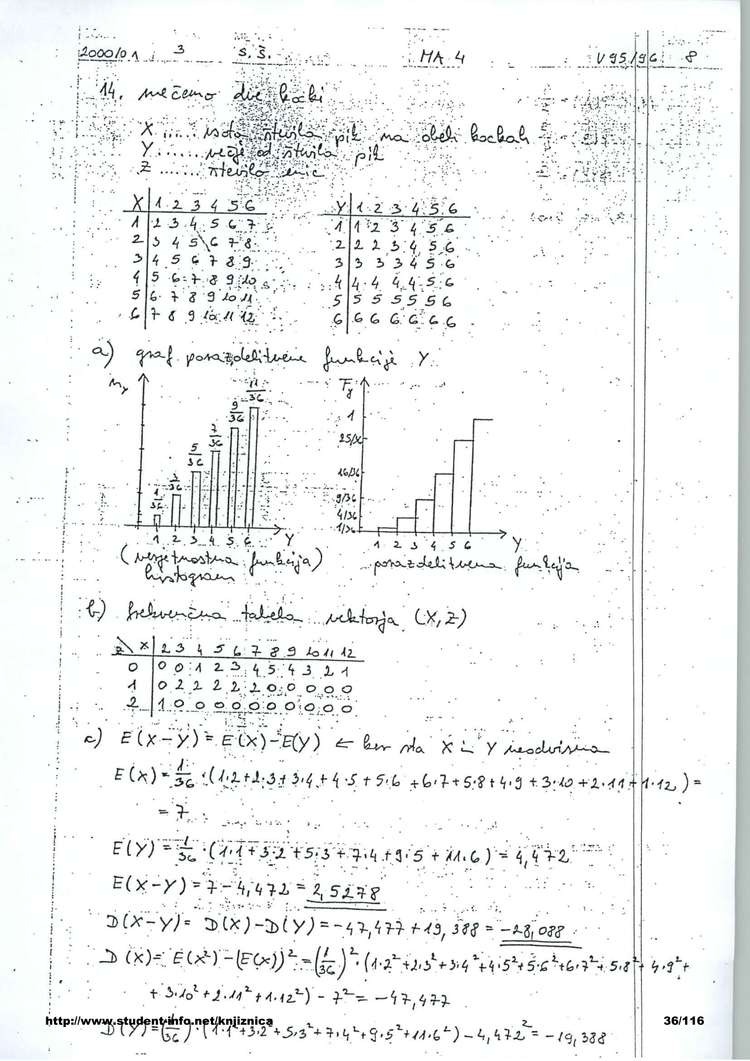 2000/01 3 S.Š. MA 4 V 95/96 8
14. mečemo dve kocki
X ..... vsota števila pik na obeh kockah
Y ...... večje od števila pik
Z ....... število enic
X | 1 2 3 4 5 6
1 | 2 3 4 5 6 7
2 | 3 4 5 6 7 8
3 | 4 5 6 7 8 9
4 | 5 6 7 8 9 10
5 | 6 7 8 9 10 11
6 | 7 8 9 10 11 12
Y | 1 2 3 4 5 6
1 | 1 2 3 4 5 6
2 | 2 2 3 4 5 6
3 | 3 3 3 4 5 6
4 | 4 4 4 4 5 6
5 | 5 5 5 5 5 6
6 | 6 6 6 6 6 6
a) graf porazdelitvene funkcije Y
1/36 3/36 5/36 7/36 9/36 11/36
1 2 3 4 5 6 Y
(verjetnostna funkcija)
histogram
Fy
1
25/36
16/36
9/36
4/36
1/36
1 2 3 4 5 6 Y
porazdelitvena funkcija
b) frekvenčna tabela vektorja (X, Z)
Z \ X | 2 3 4 5 6 7 8 9 10 11 12
0 | 0 0 1 2 3 4 5 4 3 2 1
1 | 0 2 2 2 2 2 0 0 0 0 0
2 | 1 0 0 0 0 0 0 0 0 0 0
c) E(X-Y) = E(X) - E(Y) ← ker sta X in Y neodvisna
E(X) = 1/36 · (1·2+2·3+3·4+4·5+5·6+6·7+5·8+4·9+3·10+2·11+1·12) =
= 7
E(Y) = 1/36 · (1·1+3·2+5·3+7·4+9·5+11·6) = 4,472
E(X-Y) = 7 - 4,472 = 2,5278
D(X-Y) = D(X) - D(Y) = -47,477 + 19,388 = -28,088
D(X) = E(X²) - (E(X))² = (1/36)² · (1·2²+2·3²+3·4²+4·5²+5·6²+6·7²+5·8²+4·9²+
+ 3·10²+2·11²+1·12²) - 7² = -47,477
D(Y) = (1/36)² · (1·1²+3·2²+5·3²+7·4²+9·5²+11·6²) - 4,472² = -19,388
http://www.student-info.net/knjiznica 36/116